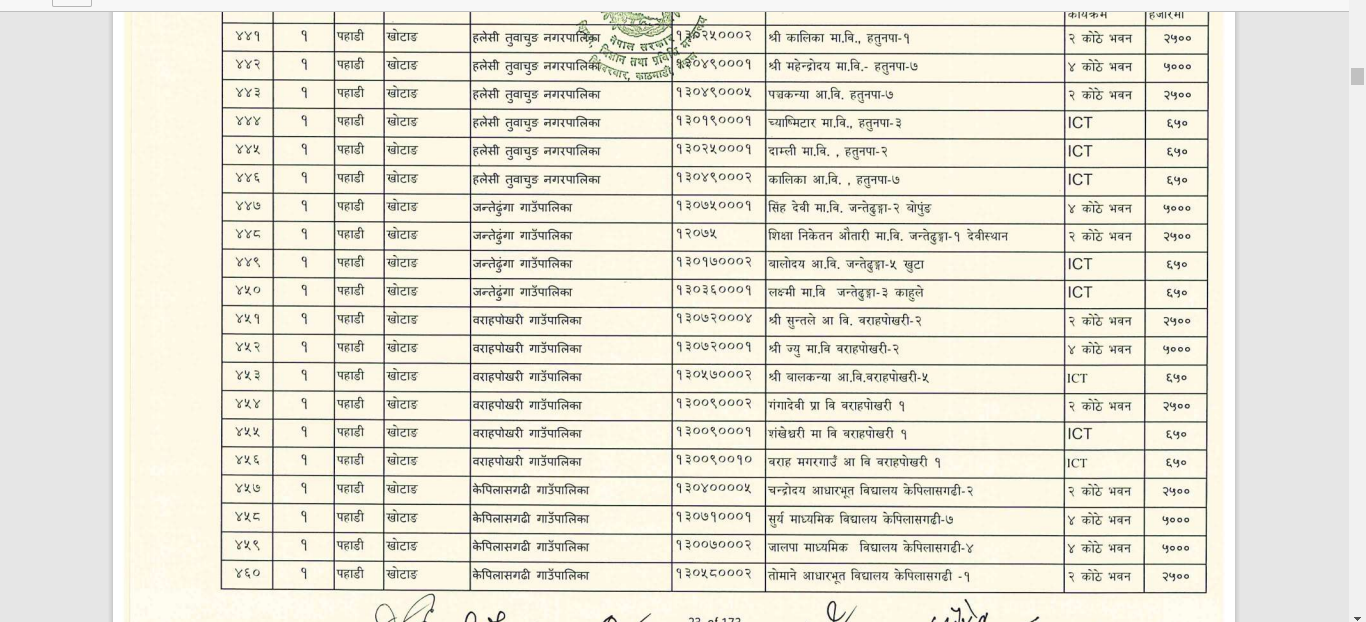 कार्यक्रम हजारमा
४४१ १ पहाडी खोटाङ हलेसी तुवाचुङ नगरपालिका १३०२५०००२ श्री कालिका मा.वि., हतुनपा-१ २ कोठे भवन २५००
४४२ १ पहाडी खोटाङ हलेसी तुवाचुङ नगरपालिका १३०४९०००१ श्री महेन्द्रोदय मा.वि.- हतुनपा-७ ४ कोठे भवन ५०००
४४३ १ पहाडी खोटाङ हलेसी तुवाचुङ नगरपालिका १३०४९०००५ पञ्चकन्या आ.वि. हतुनपा-७ २ कोठे भवन २५००
४४४ १ पहाडी खोटाङ हलेसी तुवाचुङ नगरपालिका १३०१९०००१ च्याष्मिटार मा.वि., हतुनपा-३ ICT ६५०
४४५ १ पहाडी खोटाङ हलेसी तुवाचुङ नगरपालिका १३०२५०००१ दाम्ली मा.वि. , हतुनपा-२ ICT ६५०
४४६ १ पहाडी खोटाङ हलेसी तुवाचुङ नगरपालिका १३०४९०००२ कालिका आ.वि. , हतुनपा-७ ICT ६५०
४४७ १ पहाडी खोटाङ जन्तेढुंगा गाउँपालिका १३०७५०००१ सिंह देवी मा.वि. जन्तेढुङ्गा-२ बोपुंङ ४ कोठे भवन ५०००
४४८ १ पहाडी खोटाङ जन्तेढुंगा गाउँपालिका १२०७५ शिक्षा निकेतन औतारी मा.वि. जन्तेढुङ्गा-१ देवीस्थान २ कोठे भवन २५००
४४९ १ पहाडी खोटाङ जन्तेढुंगा गाउँपालिका १३०१७०००२ बालोदय आ.वि. जन्तेढुङ्गा-५ खुटा ICT ६५०
४५० १ पहाडी खोटाङ जन्तेढुंगा गाउँपालिका १३०३६०००१ लक्ष्मी मा.वि जन्तेढुङ्गा-३ काहुले ICT ६५०
४५१ १ पहाडी खोटाङ वराहपोखरी गाउँपालिका १३०७२०००४ श्री सुन्तले आ वि. बराहपोखरी-२ २ कोठे भवन २५००
४५२ १ पहाडी खोटाङ वराहपोखरी गाउँपालिका १३०७२०००१ श्री ज्यु मा.वि बराहपोखरी-२ ४ कोठे भवन ५०००
४५३ १ पहाडी खोटाङ वराहपोखरी गाउँपालिका १३०५७०००२ श्री बालकन्या आ.वि.बराहपोखरी-५ ICT ६५०
४५४ १ पहाडी खोटाङ वराहपोखरी गाउँपालिका १३००९०००२ गंगादेवी प्रा वि बराहपोखरी १ २ कोठे भवन २५००
४५५ १ पहाडी खोटाङ वराहपोखरी गाउँपालिका १३००९०००१ शंखेश्वरी मा वि बराहपोखरी १ ICT ६५०
४५६ १ पहाडी खोटाङ वराहपोखरी गाउँपालिका १३००९००१० बराह मगरगाउँ आ वि बराहपोखरी १ ICT ६५०
४५७ १ पहाडी खोटाङ केपिलासगढी गाउँपालिका १३०४००००५ चन्द्रोदय आधारभूत विद्यालय केपिलासगढी-२ २ कोठे भवन २५००
४५८ १ पहाडी खोटाङ केपिलासगढी गाउँपालिका १३०७१०००१ सुर्य माध्यमिक विद्यालय केपिलासगढी-७ ४ कोठे भवन ५०००
४५९ १ पहाडी खोटाङ केपिलासगढी गाउँपालिका १३००७०००२ जालपा माध्यमिक विद्यालय केपिलासगढी-४ ४ कोठे भवन ५०००
४६० १ पहाडी खोटाङ केपिलासगढी गाउँपालिका १३०५८०००२ तोमाने आधारभूत विद्यालय केपिलासगढी -१ २ कोठे भवन २५००